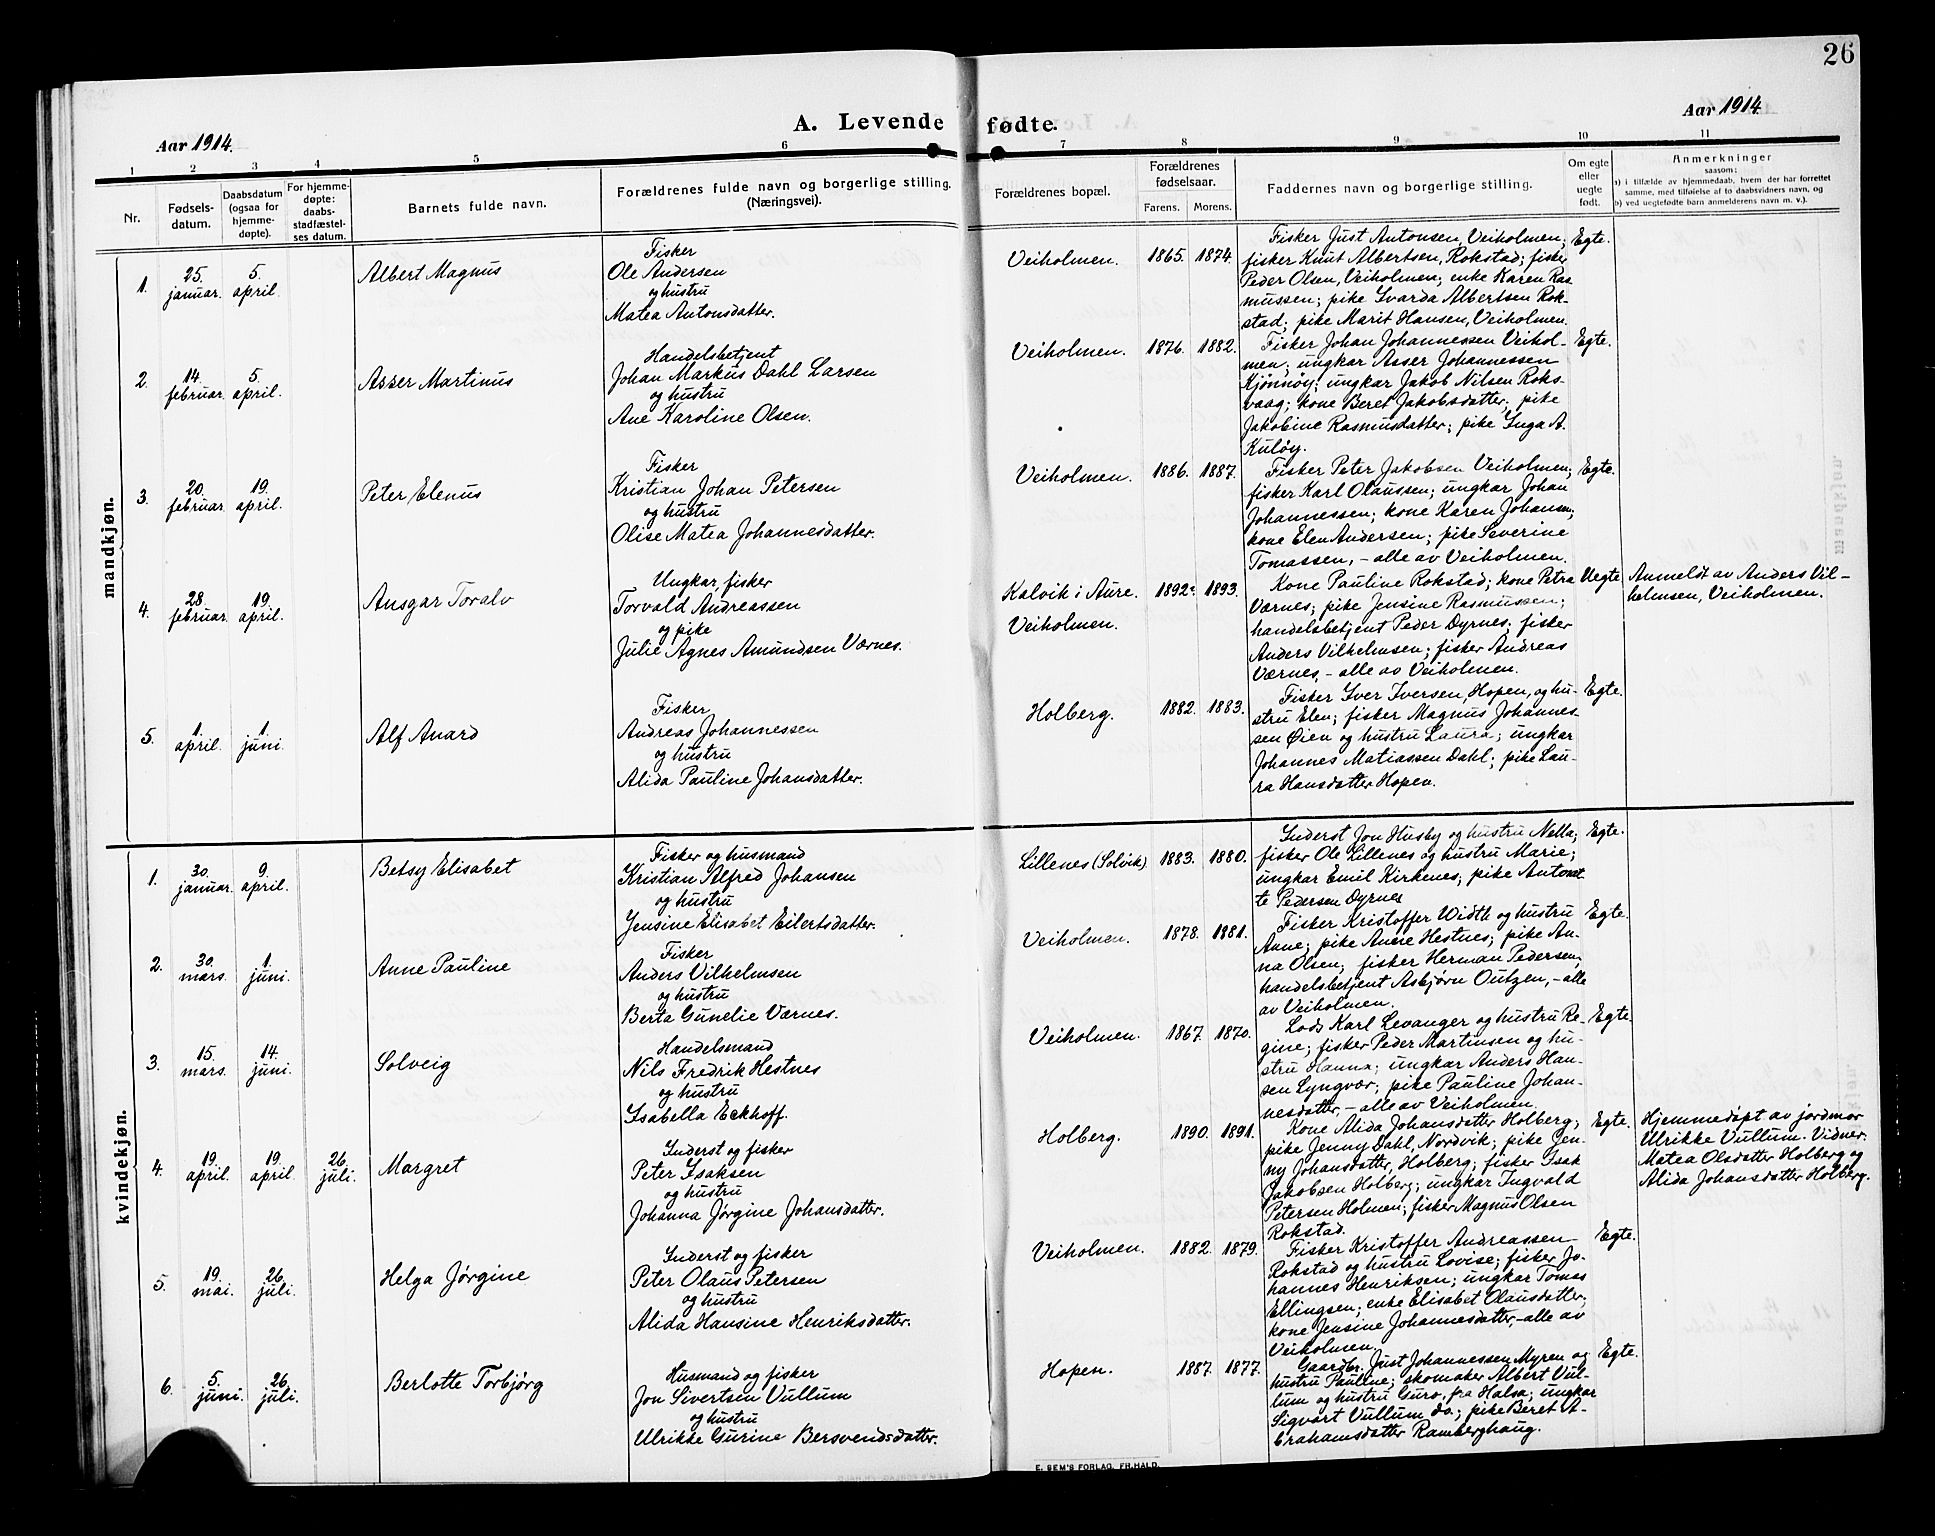 26
Aar 1914.
A. Levende fødte.
Aar 1914
1 2 3 4 5 6 7 8 9 10 11
Nr.
Fødsels-
datum.
Daabsdatum
(ogsaa for
hjemme-
døpte).
For hjemme-
døpte:
daabs-
stadfæstel-
ses datum.
Barnets fulde navn.
Forældrenes fulde navn og borgerlige stilling.
(Næringsvei).
Forældrenes bopæl.
Forældrenes
fødselsaar.
Farens. Morens.
Faddernes navn og borgerlige stilling.
Om egte
eller
uegte
født.
Anmerkninger
saasom:
a) i tilfælde av hjemmedaab, hvem der har forrettet
samme, med tilføielse af to daabsvidners navn, og
b) ved uegtefødte barn anmelderens navn m. v.).
mandkjøn.
1.
25.
januar.
5.
april.
Albert Magnus
Fisker
Ole Andersen
og hustru
Matea Antonsdatter.
Veiholmen. 1865. 1874.
Fisker Just Antonsen, Veiholmen;
fisker Knut Albertsen, Rokstad; fisker
Peder Olsen, Veiholmen; enke Karen Ras-
mussen; pike Ivarda Albertsen Rok-
stad; pike Marit Hansen, Veiholmen.
Egte.
2.
14.
februar.
5.
april.
Asser Martinus
Handelsbetjent
Johan Markus Dahl Larsen
og hustru
Ane Karoline Olsen.
Veiholmen. 1876. 1882.
Fisker Johan Johannessen Veihol-
men; ungkar Asser Johannessen
Kjønnøy; ungkar Jakob Nilsen Roks-
vaag; kone Beret Jakobsdatter; pike
Jakobine Rasmusdatter; pike Inga A.
Kuløy.
Egte.
3.
20.
februar.
19.
april.
Peter Elenus
Fisker
Kristian Johan Petersen
og hustru
Olise Matea Johannesdatter.
Veiholmen. 1886. 1887.
Fisker Peter Jakobsen Veiholmen;
fisker Karl Olaussen; ungkar Johan
Johannessen; kone Karen Johansen;
kone Elen Andersen; pike Severine
Tomassen, - alle av Veiholmen.
Egte.
4.
28.
februar.
19.
april.
Ansgar Toralv
Ungkar, fisker
Torvald Andreassen
og pike
Julie Agnes Amundsen Værnes.
Kalvik i Aure. 1892. 1893.
Veiholmen.
Kone Pauline Rokstad; kone Petra
Værnes; pike Jensine Rasmussen;
handelsbetjent Peder Dyrnes; fisker
Anders Vilhelmsen; fisker Andreas
Værnes, - alle av Veiholmen.
Uegte
Anmeldt av Anders Vil-
helmsen, Veiholmen.
5.
1
april.
1
juni.
Alf Anard
Fisker
Andreas Johannessen
og hustru
Alida Pauline Johansdatter.
Holberg. 1882. 1883.
Fisker Iver Iversen, Hopen, og hu-
stru Elen; fisker Magnus Johannes-
sen Øien og hustru Laura; ungkar
Johannes Matiassen Dahl; pike Lau-
ra Hansdatter Hopen.
Egte.
kvindekjøn.
1.
30.
januar.
9.
april.
Betsy Elisabet
Fisker og husmand
Kristian Alfred Johansen
og hustru
Jensine Elisabet Eilertsdatter.
Lillenes (Solvik) 1883. 1880.
Inderst Jon Husby og hustru Nella;
fisker Ole Lillenes og hustru Marie;
ungkar Emil Kirkenes; pike Antonet-
te Pedersen Dyrnes
Egte.
2.
30.
mars.
1.
juni.
Anne Pauline
Fisker
Anders Vilhelmsen
og hustru
Berta Gunelie Værnes.
Veiholmen. 1878. 1881.
Fisker Kristoffer Width og hustru
Anne; pike Anne Hestnes; pike An-
na Olsen; fisker Herman Pedersen;
handelsbetjent Asbjørn Outzen, - alle
av Veiholmen.
Egte.
3.
15.
mars.
14.
juni.
Solveig
Handelsmand
Nils Fredrik Hestnes
og hustru
Isabella Eckhoff.
Veiholmen. 1867. 1870.
Lods Karl Levanger og hustru Re-
gine; fisker Peder Martinsen og hu-
stru Hanna; ungkar Anders Han-
sen Lyngvær; pike Pauline Johan-
nesdatter, - alle av Veiholmen.
Egte.
4.
19.
april.
19.
april.
26.
juli.
Margret
Inderst og fisker
Peter Isaksen
og hustru
Johanna Jørgine Johansdatter.
Holberg. 1890. 1891.
Kone Alida Johansdatter Holberg;
pike Jenny Dahl, Nordvik; pike Jen-
ny Johansdatter, Holberg; fisker Isak
Jakobsen Holberg; ungkar Ingvald
Petersen Holmen; fisker Magnus Olsen
Rokstad.
Egte.
Hjemmedøpt av jordmor
Ulrikke Vullum. Vidner:
Matea Olsdatter Holberg og
Alida Johansdatter Holberg.
5.
19.
mai.
26.
juli.
Helga Jørgine
Inderst og fisker
Peter Olaus Petersen
og hustru
Alida Hansine Henriksdatter.
Veiholmen. 1882. 1879.
Fisker Kristoffer Andreassen
Rokstad og hustru Lovise; fisker Jo-
hannes Henriksen; ungkar Tomas
Ellingsen; enke Elisabet Olausdatter;
kone Jensine Johannesdatter, - alle av
Veiholmen.
Egte.
6.
5.
juni.
26.
juli.
Berlotte Torbjørg
Husmand og fisker
Jon Sivertsen Vullum
og hustru
Ulrikke Gurine Bersvendsdatter.
Hopen. 1887. 1877.
Gaardbr. Just Johannessen Myren og
hustru Pauline; skomaker Albert Vul-
lum og hustru Guro, fra Halsa; ungkar
Sigvart Vullum do.; pike Beret A-
brahamsdatter Ramberghaug.
Egte.
E. SEM'S FORLAG, FR.HALD.